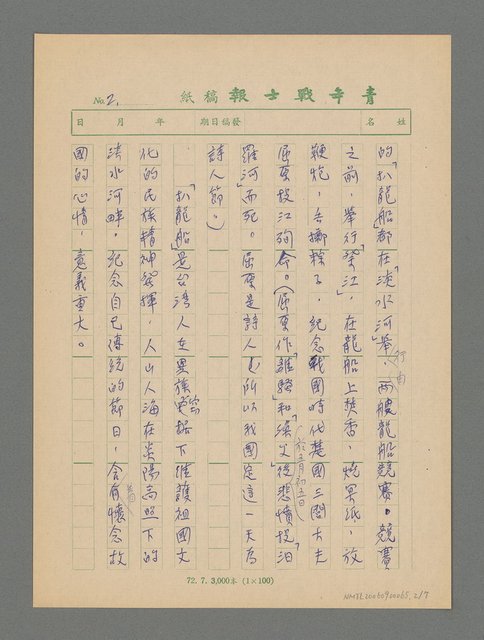 青年戰士報稿紙
No. 2.
姓名
發稿日期
年月日
的「扒龍船」都在「淡水河」舉行，由兩艘龍船競賽。競賽
之前，舉行「祭江」，在龍船上焚香，燒冥紙，放
鞭炮，丟擲粽子，紀念戰國時代楚國三閭大夫
屈原投江殉命。（屈原作「離騷」和「漁父」後悲憤於五月初五日投汨
羅河」而死。屈原是詩人，所以我國定這一天為
詩人節。）
「扒龍船」是台灣人在異族下維護祖國文
化的民族精神發揮，人山人海在炎陽高照下的
淡水河畔，紀念自己傳統的節日，含有著懷念故
國的心情，意義重大。
72. 7. 3,000本 (1×100)
NMTL20060900065, 2/7